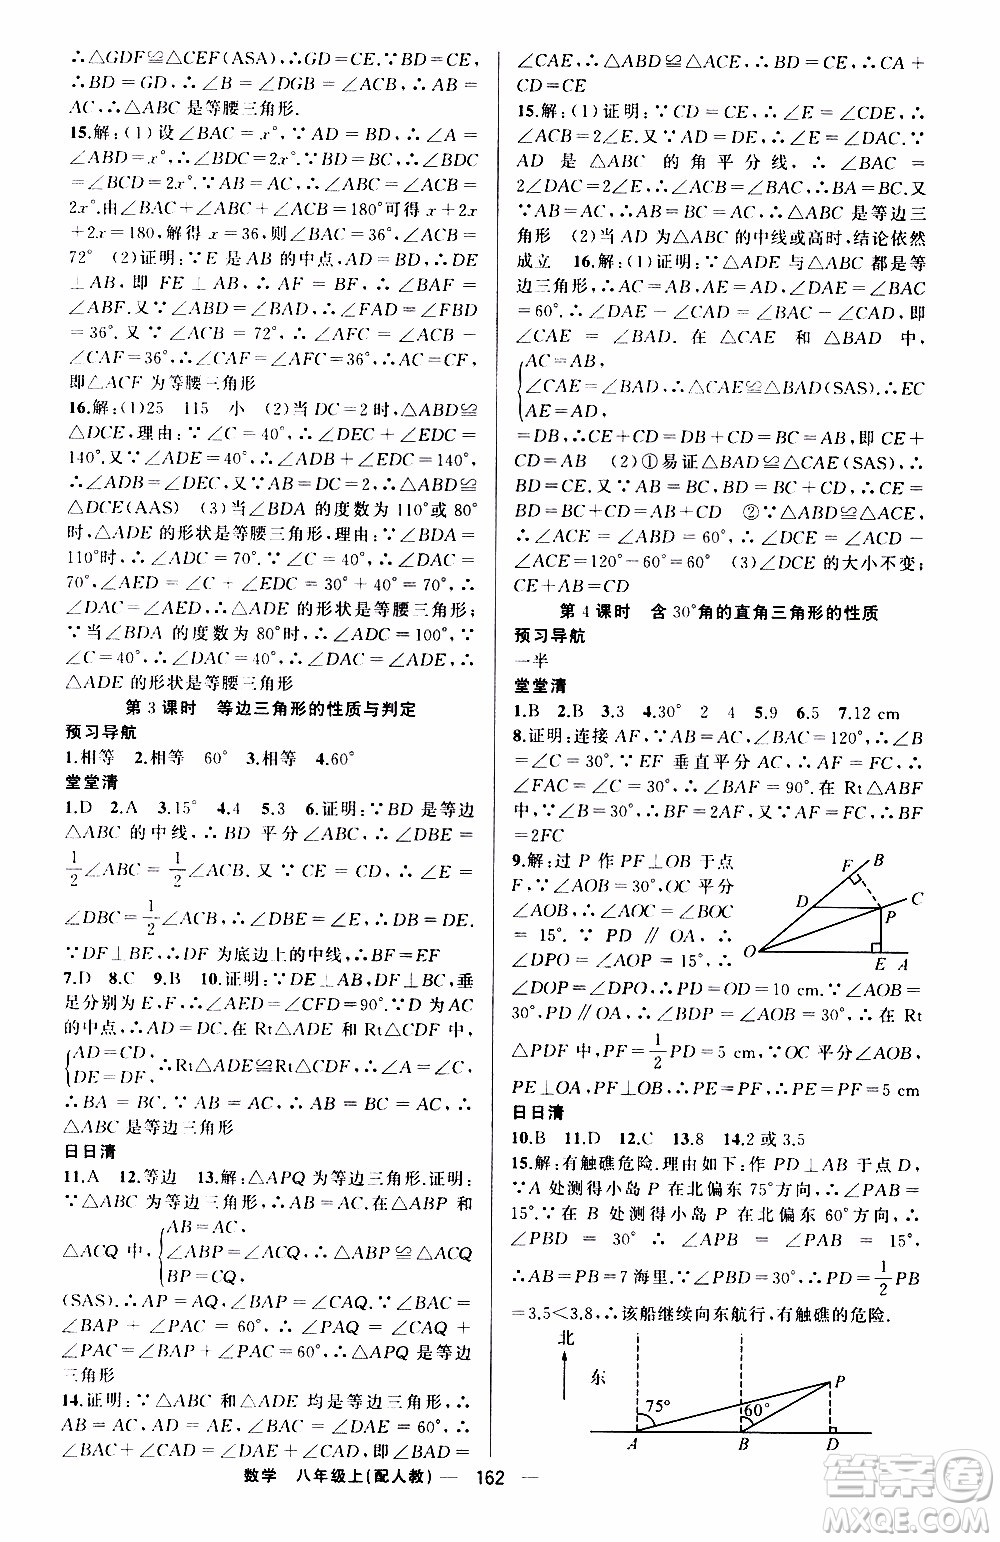 ∴△GDF≌△CEF(ASA),∴GD=CE.∵BD=CE,
∴BD=GD,∴∠B=∠DGB=∠ACB,∴AB=
AC,∴△ABC 是等腰三角形.
15.解:(1)设∠BAC=x°,∵AD=BD,∴∠A=
∠ABD=x°,∴∠BDC=2x°.∵BD=BC,∴∠BDC
=∠BCD=2x°.∵AB=AC,∴∠ABC=∠ACB=
2x°.由∠BAC+∠ABC+∠ACB=180°可得 x+2x
+2x=180,解得 x=36,则∠BAC=36°,∠ACB=
72° (2)证明:∵E 是 AB 的中点,AD=BD,∴DE
⊥AB,即 FE⊥AB,∴AF=BF,∴∠BAF=
∠ABF.又∵∠ABD=∠BAD,∴∠FAD=∠FBD
=36°.又∵∠ACB=72°,∴∠AFC=∠ACB-
∠CAF=36°,∴∠CAF=∠AFC=36°,∴AC=CF,
即△ACF 为等腰三角形
16.解:(1)25 115 小 (2)当 DC=2时,△ABD≌
△DCE,理由:∵∠C=40°,∴∠DEC+∠EDC=
140°.又∵∠ADE=40°,∴∠ADB+∠EDC=140°,
∴∠ADB=∠DEC.又∵AB=DC=2,∴△ABD≌
△DCE(AAS) (3)当∠BDA 的度数为 110°或 80°
时,△ADE 的形状是等腰三角形.理由:∵∠BDA=
110°时,∴∠ADC=70°.∵∠C=40°,∴∠DAC=
70°,∴∠AED=∠C+∠DAC=30°+40°=70°,∴
∠DAC=∠AED,∴△ADE 的形状是等腰三角形;
∵当∠BDA 的度数为 80°时,∴∠ADC=100°.∵
∠C=40°,∴∠DAC=40°,∴∠DAC=∠ADE,∴
△ADE 的形状是等腰三角形
第 3 课时 等边三角形的性质与判定
预习导航
1.相等 2.相等 60° 3.相等 4.60°
堂堂清
1.D 2.A 3.15° 4.4 5.3 6.证明:∵BD 是等边
△ABC 的中线,∴BD 平分∠ABC,∴∠DBE=
1/2∠ABC=1/2∠ACB.又∵CE=CD,∴∠E=
∠DBC=1/2∠ACB,∴∠DBE=∠E,∴DB=DE.
∵DF⊥BE,∴DF 为底边上的中线,∴BF=EF
7.D 8.C 9.B 10.证明:∵DE⊥AB,DF⊥BC,垂
足分别为 E,F,∴∠AED=∠CFD=90°.∵D 为 AC
的中点,∴AD=DC.在 Rt△ADE 和 Rt△CDF 中,
{AD=CD,
DE=DF, ∴Rt△ADE≌Rt△CDF(HL),∴∠A=∠C,
∴BA=BC.∵AB=AC,∴AB=BC=AC,∴
△ABC 是等边三角形
日日清
11.A 12.等边 13.解:△APQ 为等边三角形.证明:
∵△ABC 为等边三角形,∴AB=AC.在△ABP 和
△ACQ 中,{AB=AC,
∠ABP=∠ACQ,∴△ABP≌△ACQ
BP=CQ,
(SAS).∴AP=AQ,∠BAP=∠CAQ.∵∠BAC=
∠BAP+∠PAC=60°,∴∠PAQ=∠CAQ+
∠PAC=∠BAP+∠PAC=60°,∴△APQ 是等边
三角形
14.证明:∵△ABC 和△ADE 均是等边三角形,∴
AB=AC,AD=AE,∠BAC=∠DAE=60°,∴
∠BAC+∠CAD=∠DAE+∠CAD,即∠BAD=
∠CAE,∴△BAD≌△ACE,∴BD=CE,∴CA+
CD=CE
15.解:(1)证明:∵CD=CE,∴∠E=∠CDE,∴
∠ACB=2∠E.又∵AD=DE,∴∠E=∠DAC.∵
AD 是△ABC 的角平分线,∴∠BAC=
2∠DAC=2∠E,∴∠ACB=∠BAC,∴BA=BC.又
∵AB=AC,∴AB=BC=AC,∴△ABC 是等边三
角形 (2)当 AD 为△ABC 的中线或高时,结论依然
成立 16.解:(1)证明:∵△ADE 与△ABC 都是等
边三角形,∴AC=AB,AE=AD,∠DAE=∠BAC
=60°.∴∠DAE-∠CAD=∠BAC-∠CAD.即
∠CAE=∠BAD.在△CAE 和△BAD 中,
{AC=AB,
∠CAE=∠BAD,∴△CAE≌△BAD(SAS).∴EC
AE=AD,
=DB,∴CE+CD=DB+CD=AB,即 CE+CD
=AB (2)①易证△BAD≌△CAE(SAS),∴CE=
BD=CD+BC=CD+AB ②∵△ABD≌△ACE,
∴∠ACE=∠ABD=60°,∴∠DCE=∠ACD-
∠ACE=120°-60°=60° (3)∠DCE 的大小不变;
CE+AB=CD
第 4 课时 含 30°角的直角三角形的性质
预习导航
一半
堂堂清
1.B 2.B 3.3 4.30° 2 4 5.9 6.5 7.12 cm
8.证明:连接 AF,∵AB=AC,∠BAC=120°,∴∠B
=∠C=30°.∵EF 垂直平分 AC,∴AF=FC,∴
∠FAC=∠C=30°,∴∠BAF=90°.在 Rt△ABF
中,∵∠B=30°,∴BF=2AF,又∵AF=FC,∴BF
=2FC
9.解:过 P 作 PF⊥OB 于点
F,∵∠AOB=30°,OC 平分
∠AOB,∴∠AOC=∠BOC
=15°.∵PD∥OA,∴
∠DPO=∠AOP=15°,∴
∠DOP=∠DPO,∴PD=OD=10 cm.∵∠AOB=
30°,PD∥OA,∴∠BDP=∠AOB=30°,∴在 Rt
△PDF 中,PF=1/2PD=5 cm.∵OC 平分∠AOB,
PE⊥OA,PF⊥OB,∴PE=PF,∴PE=PF=5 cm
F B
D
C
P
O
E A
日日清
10.B 11.D 12.C 13.8 14.2 或 3.5
15.解:有触礁危险.理由如下:作 PD⊥AB 于点 D,
∵A 处测得小岛 P 在北偏东 75°方向,∴∠PAB=
15°.∵在 B 处测得小岛 P 在北偏东 60°方向,∴
∠PBD=30°,∴∠APB=∠PAB=15°,
∴AB=PB=7 海里.∵∠PBD=30°,∴PD=1/2PB
=3.5<3.8,∴该船继续向东航行,有触礁的危险.
北
东
75°
60°
P
A B D
数学 八年级上(配人教) — 162 —
答案圈
MXQE.COM